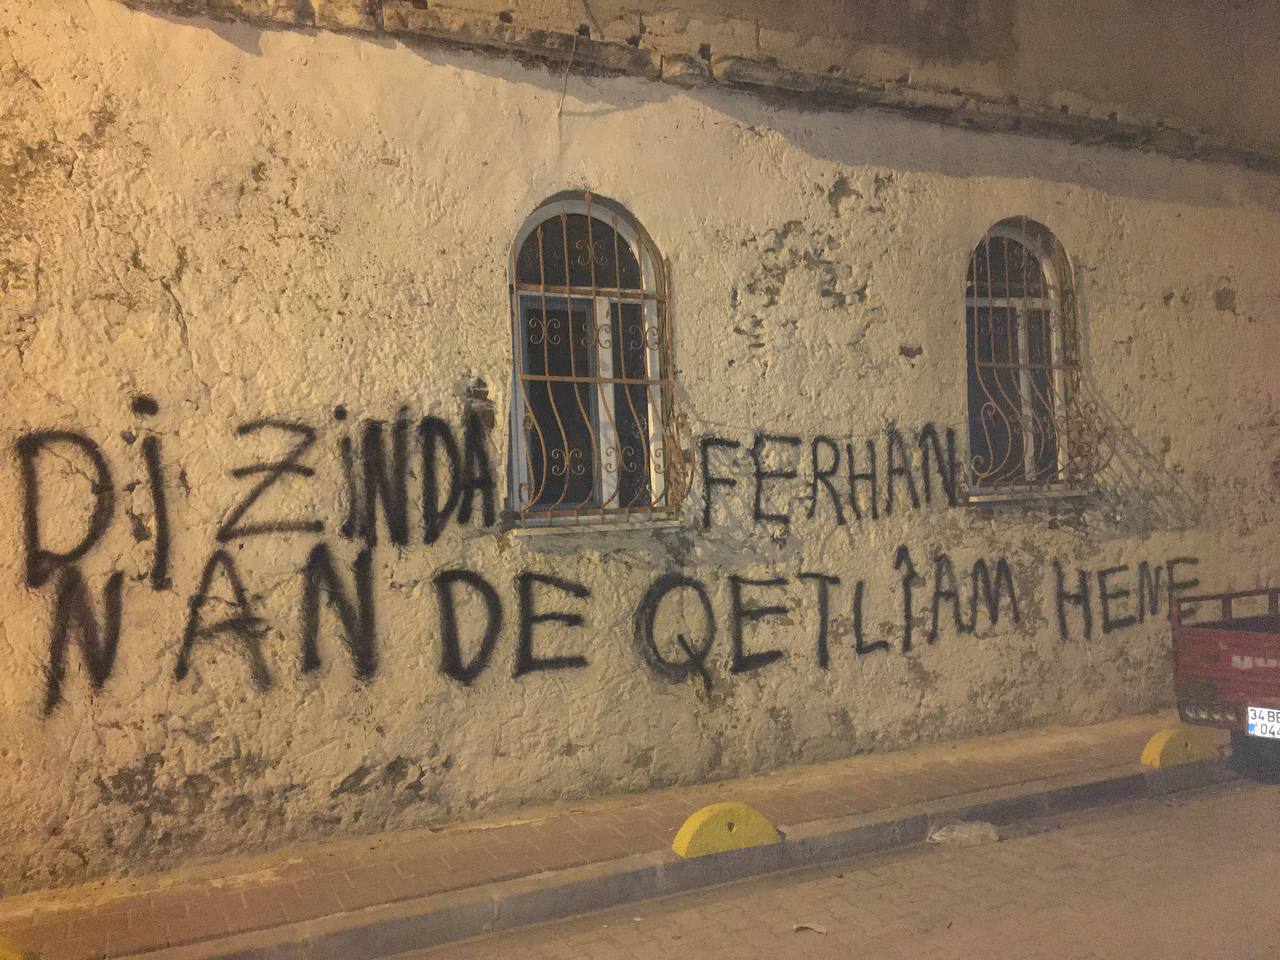 Dİ ZİNDA FERHAN
NAN DE QETLÎAM HENE
34 BE
044